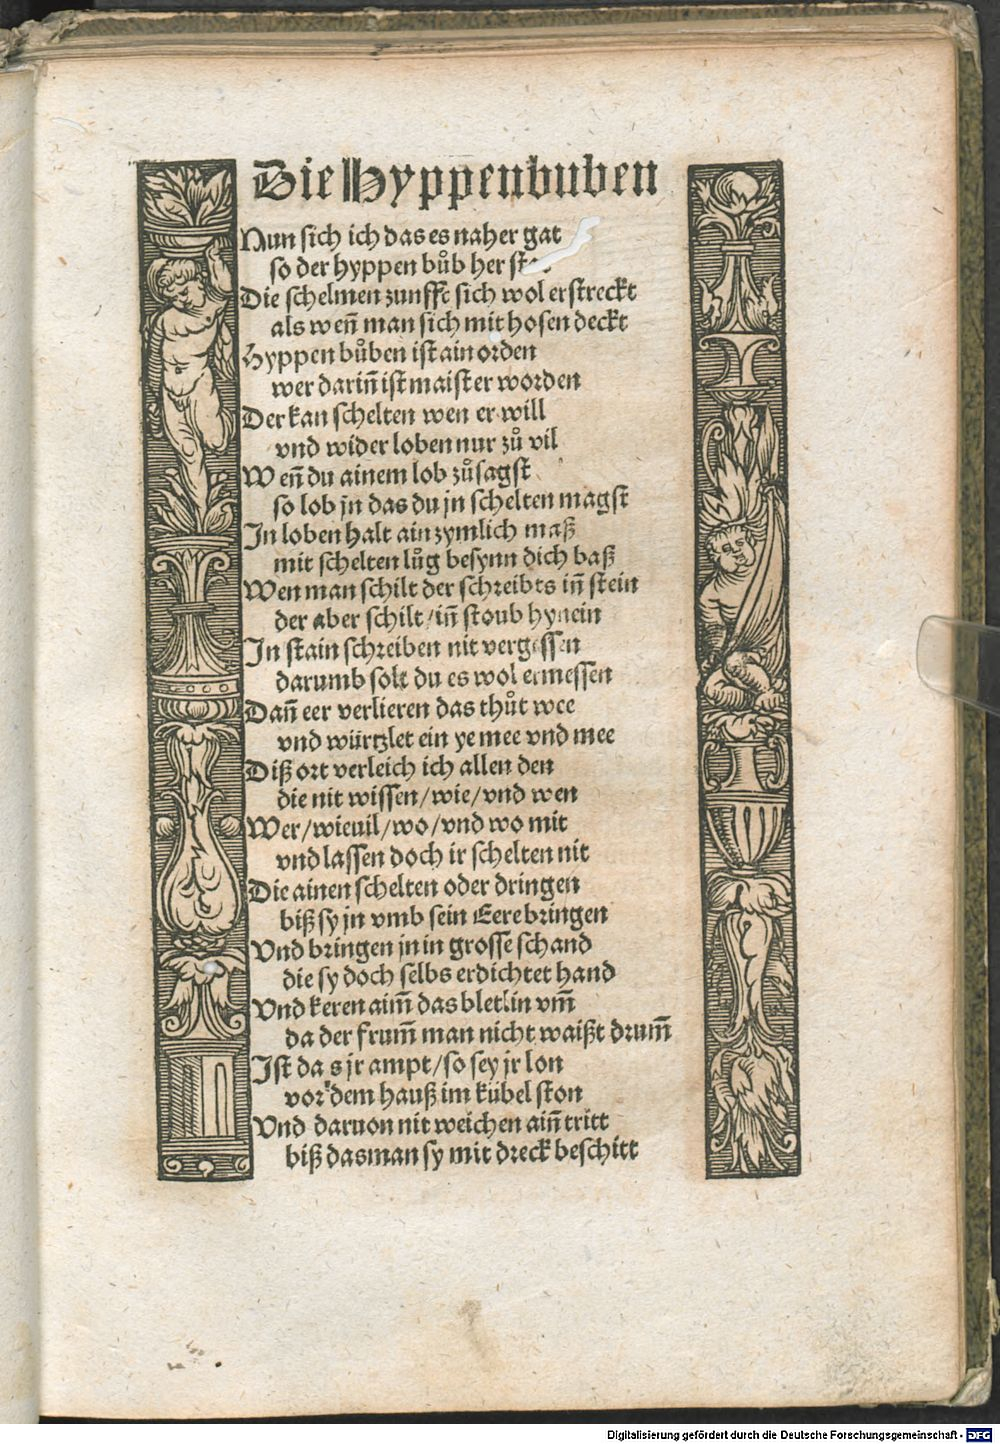 Die Hyppenbuben
Nun sich ich das es naher gat
so der hyppen bůb her
Die schelmen zunfft sich wol erstreckt
als weñ man sich mit hosen deckt
Hyppen bůben ist ain orden
wer dariñ ist maister worden
Der kan schelten wen er will
vnd wider loben nur zů vil
Weñ du ainem lob zůsagst
so lob jn das du jn schelten magst
In loben halt ain zymlich maß
mit schelten lůg besynn dich baß
Wen man schilt der schreibts iñ stein
der aber schilt/iñ stoub hynein
In stain schreiben nit vergessen
darumb solt du es wol ermessen
Dañ eer verlieren das thůt wee
vnd würtzlet ein ye mee vnd mee
Diß ort verleich ich allen den
die nit wissen/wie/vnd wen
Wer/wieuil/wo/vnd wo mit
vnd lassen doch ir schelten nit
Die ainen schelten oder dringen
biß sy jn vmb sein Eere bringen
Vnd bringen jn in grosse schand
die sy doch selbs erdichtet hand
Vnd keren aim̄ das bletlin vm̄
da der frum̄ man nicht waißt drum̄
Ist das jr ampt/so sey jr lon
vor dem hauß im kübel ston
Vnd daruon nit weichen aiñ tritt
biß das man sy mit dreck beschitt
Digitalisierung gefördert durch die Deutsche Forschungsgemeinschaft - DFG